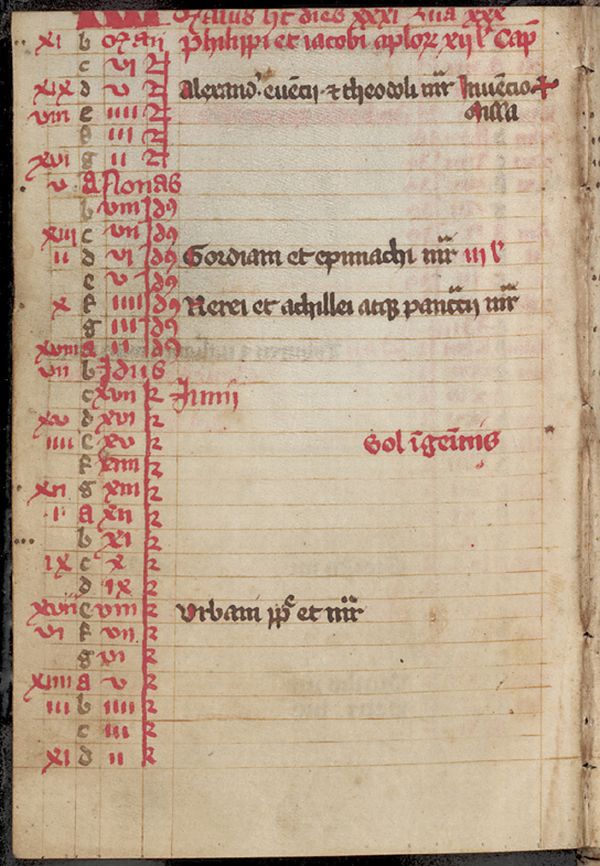 Maius ht dies xxxi lua xxx
xi b Maii Philippi et iacobi aploꝝ xii l' Cap
c vi N
xix d v N Alexand' euēcij ⁊ theodoli mr̄ Inuēcio ✝
viii e iiii N Missa
f iii N
xvi g ii N
v a Nonas
b viii id9
xiii c vii id9
ii d vi id9 Gordiani et epimachi mr̄ iii l'
e v id9
x f iiii id9 Nerei et achillei atqꝫ panc̄cij mr̄
g iii id9
xviii a ii id9
vii b Idus
c xvii k Iunij
xv d xvi k
iiii e xv k Sol ī geīnis
f xiiii k
xii g xiii k
i a xii k
b xi k
ix c x k
d ix k
xvii e viii k Urbani pp et mr̄
vi f vii k
g vi k
xiiii a v k
iii b iiii k
c iii k
xi d ii k